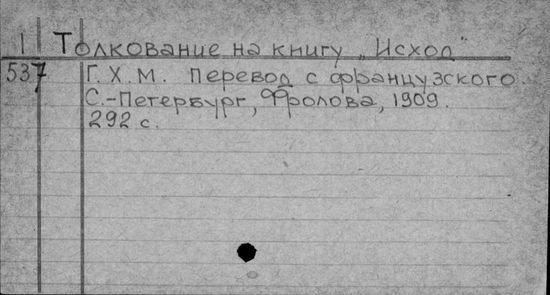 I Толкование на книгу „Исход"
537 Г. Х. М. Перевод с французского.
С.-Петербург, Фролова, 1909.
292 с.